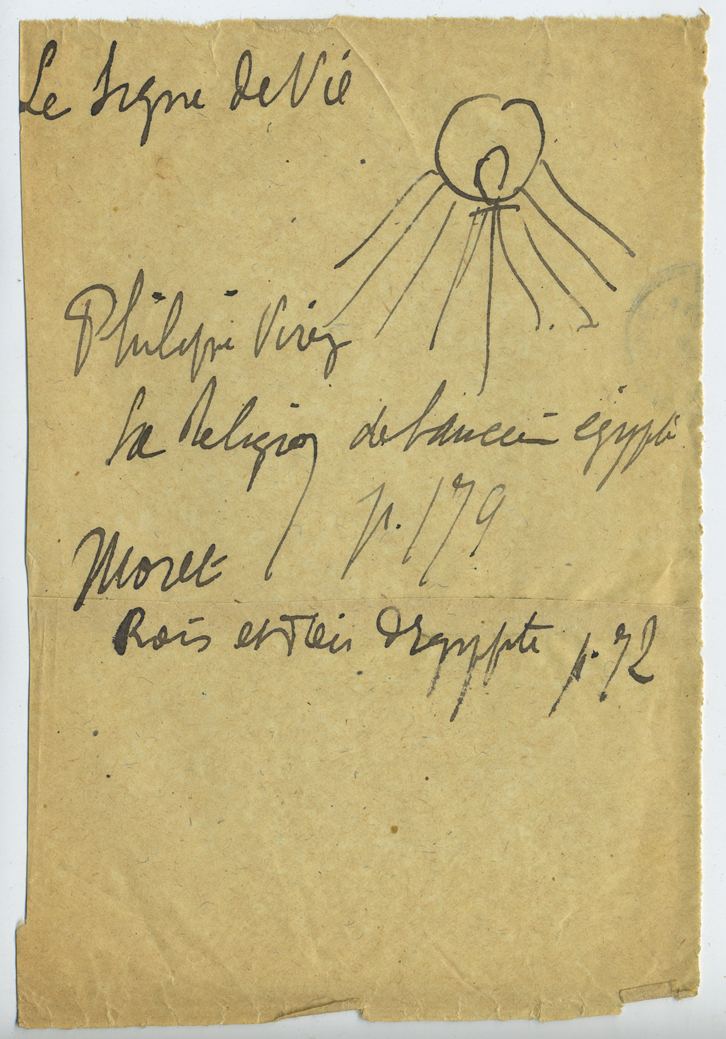 Le Signe de Vie
Philippe Virey
La Religion de l'ancienne égypte
p. 179
Moret
Rois et Dieux d'Egypte p. 72